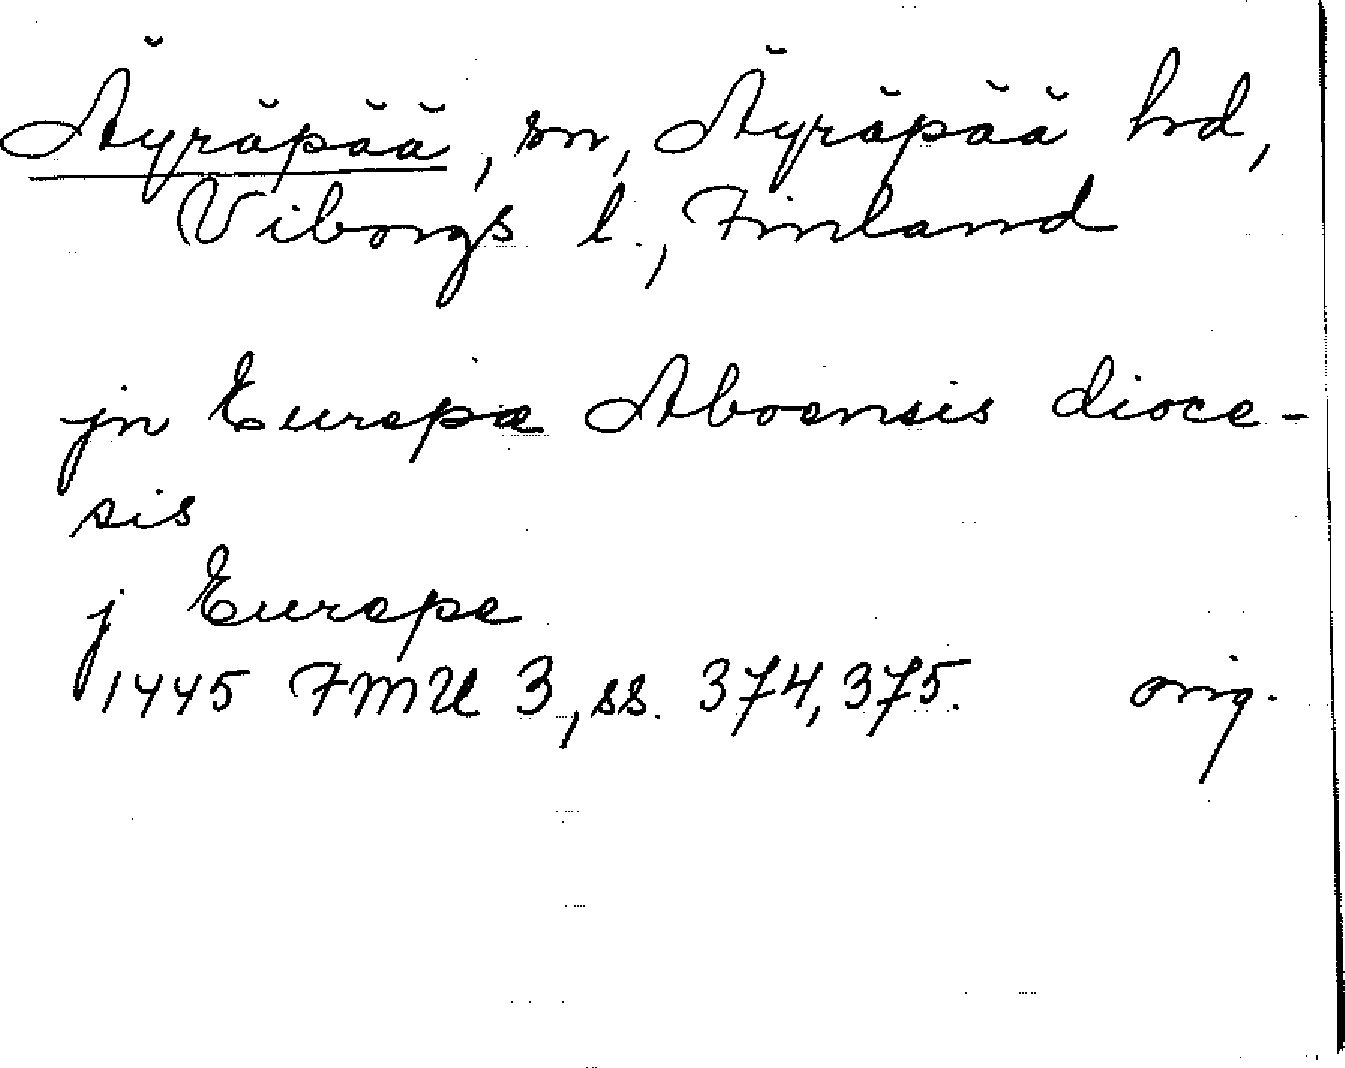 Äyräpää, sn, Äyräpää hd,
Viborgs l., Finland
jn Eurepæ Aboensis dioce-
sis
j Eurepe
1445 FMU 3, ss. 374, 375. orig.